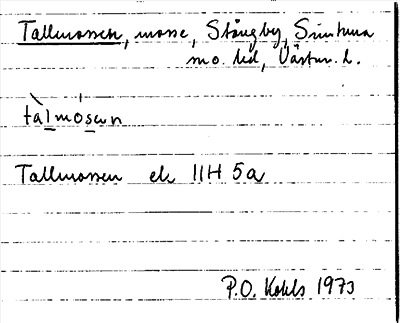 Tallmossen, mosse, Stångby, Simtuna
sn o. hd, Västm. l.
tàlmósen
Tallmossen ek 11H 5a
P.O. Kohls 1973